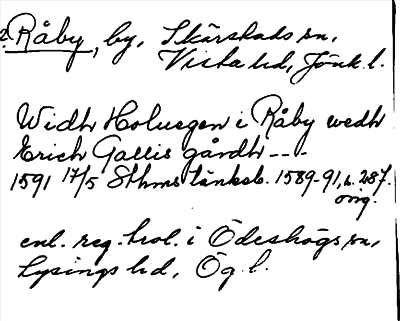 2. Råby, by, Skärstads sn,
Vista hd, Jönk. l.
Widh Holuegen i Råby wedh
Erich Gallis gårdh ---
1591 17/5 Sthms tänkeb. 1589-91, s. 287.
orig.
enl. reg. trol. i Ödeshögs sn,
Lysings hd, Ög. l.